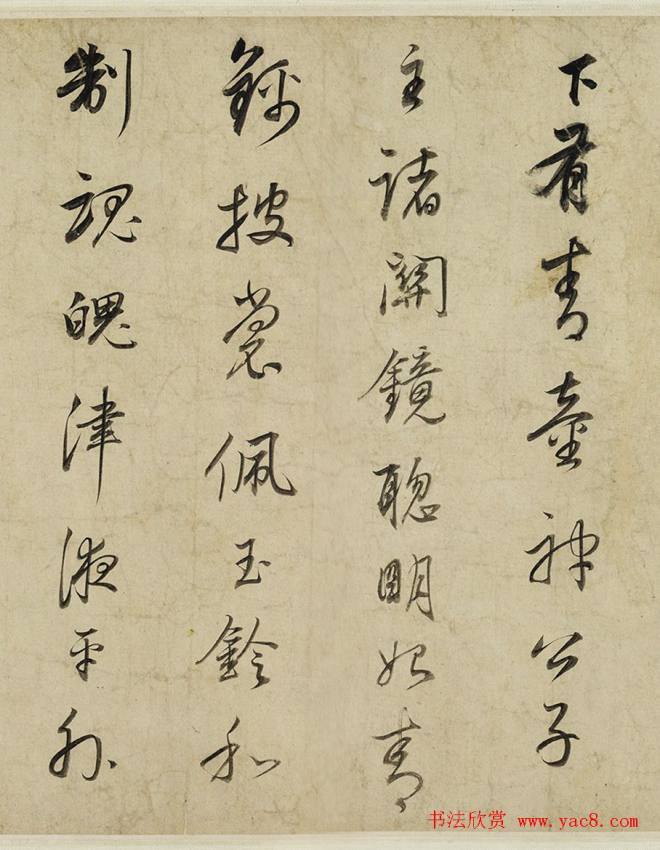 下有青童神公子
主諸關鏡聰明始青
錦披裳佩玉鈴和
制魂魄津液平外
书法欣赏 www.yac8.com